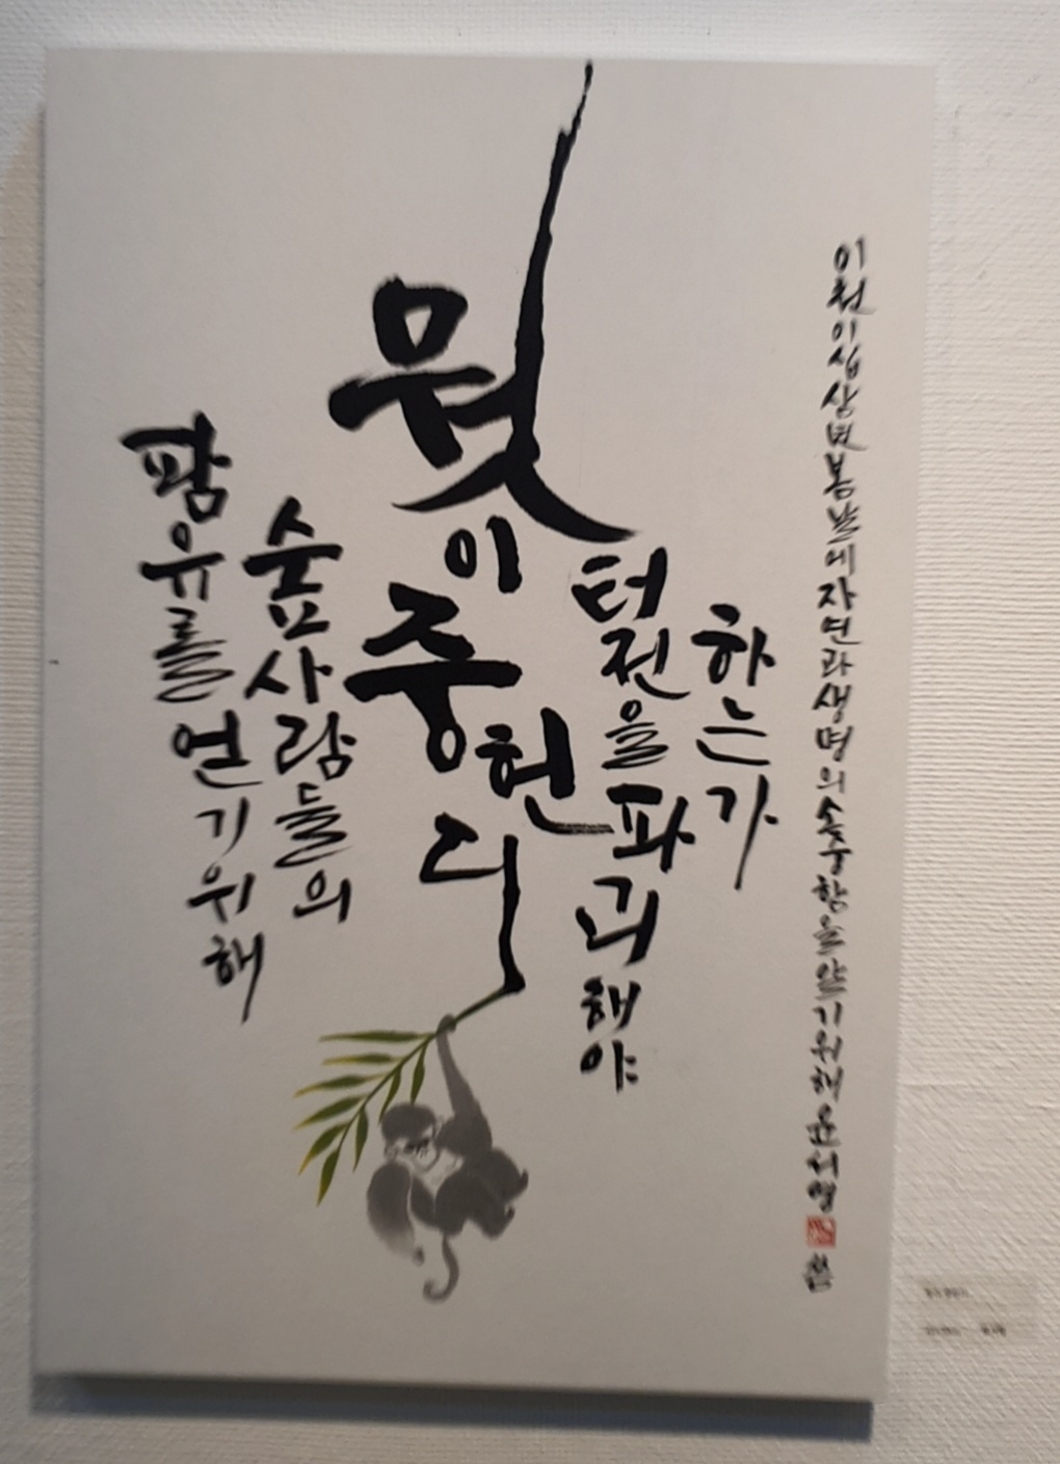 팜유를 얻기위해
숲사람들의
뭣이 중헌디
터전을 파괴해야
하는가
이천이십삼년 봄날에 자연과 생명의 소중함을 알기위해 윤서영